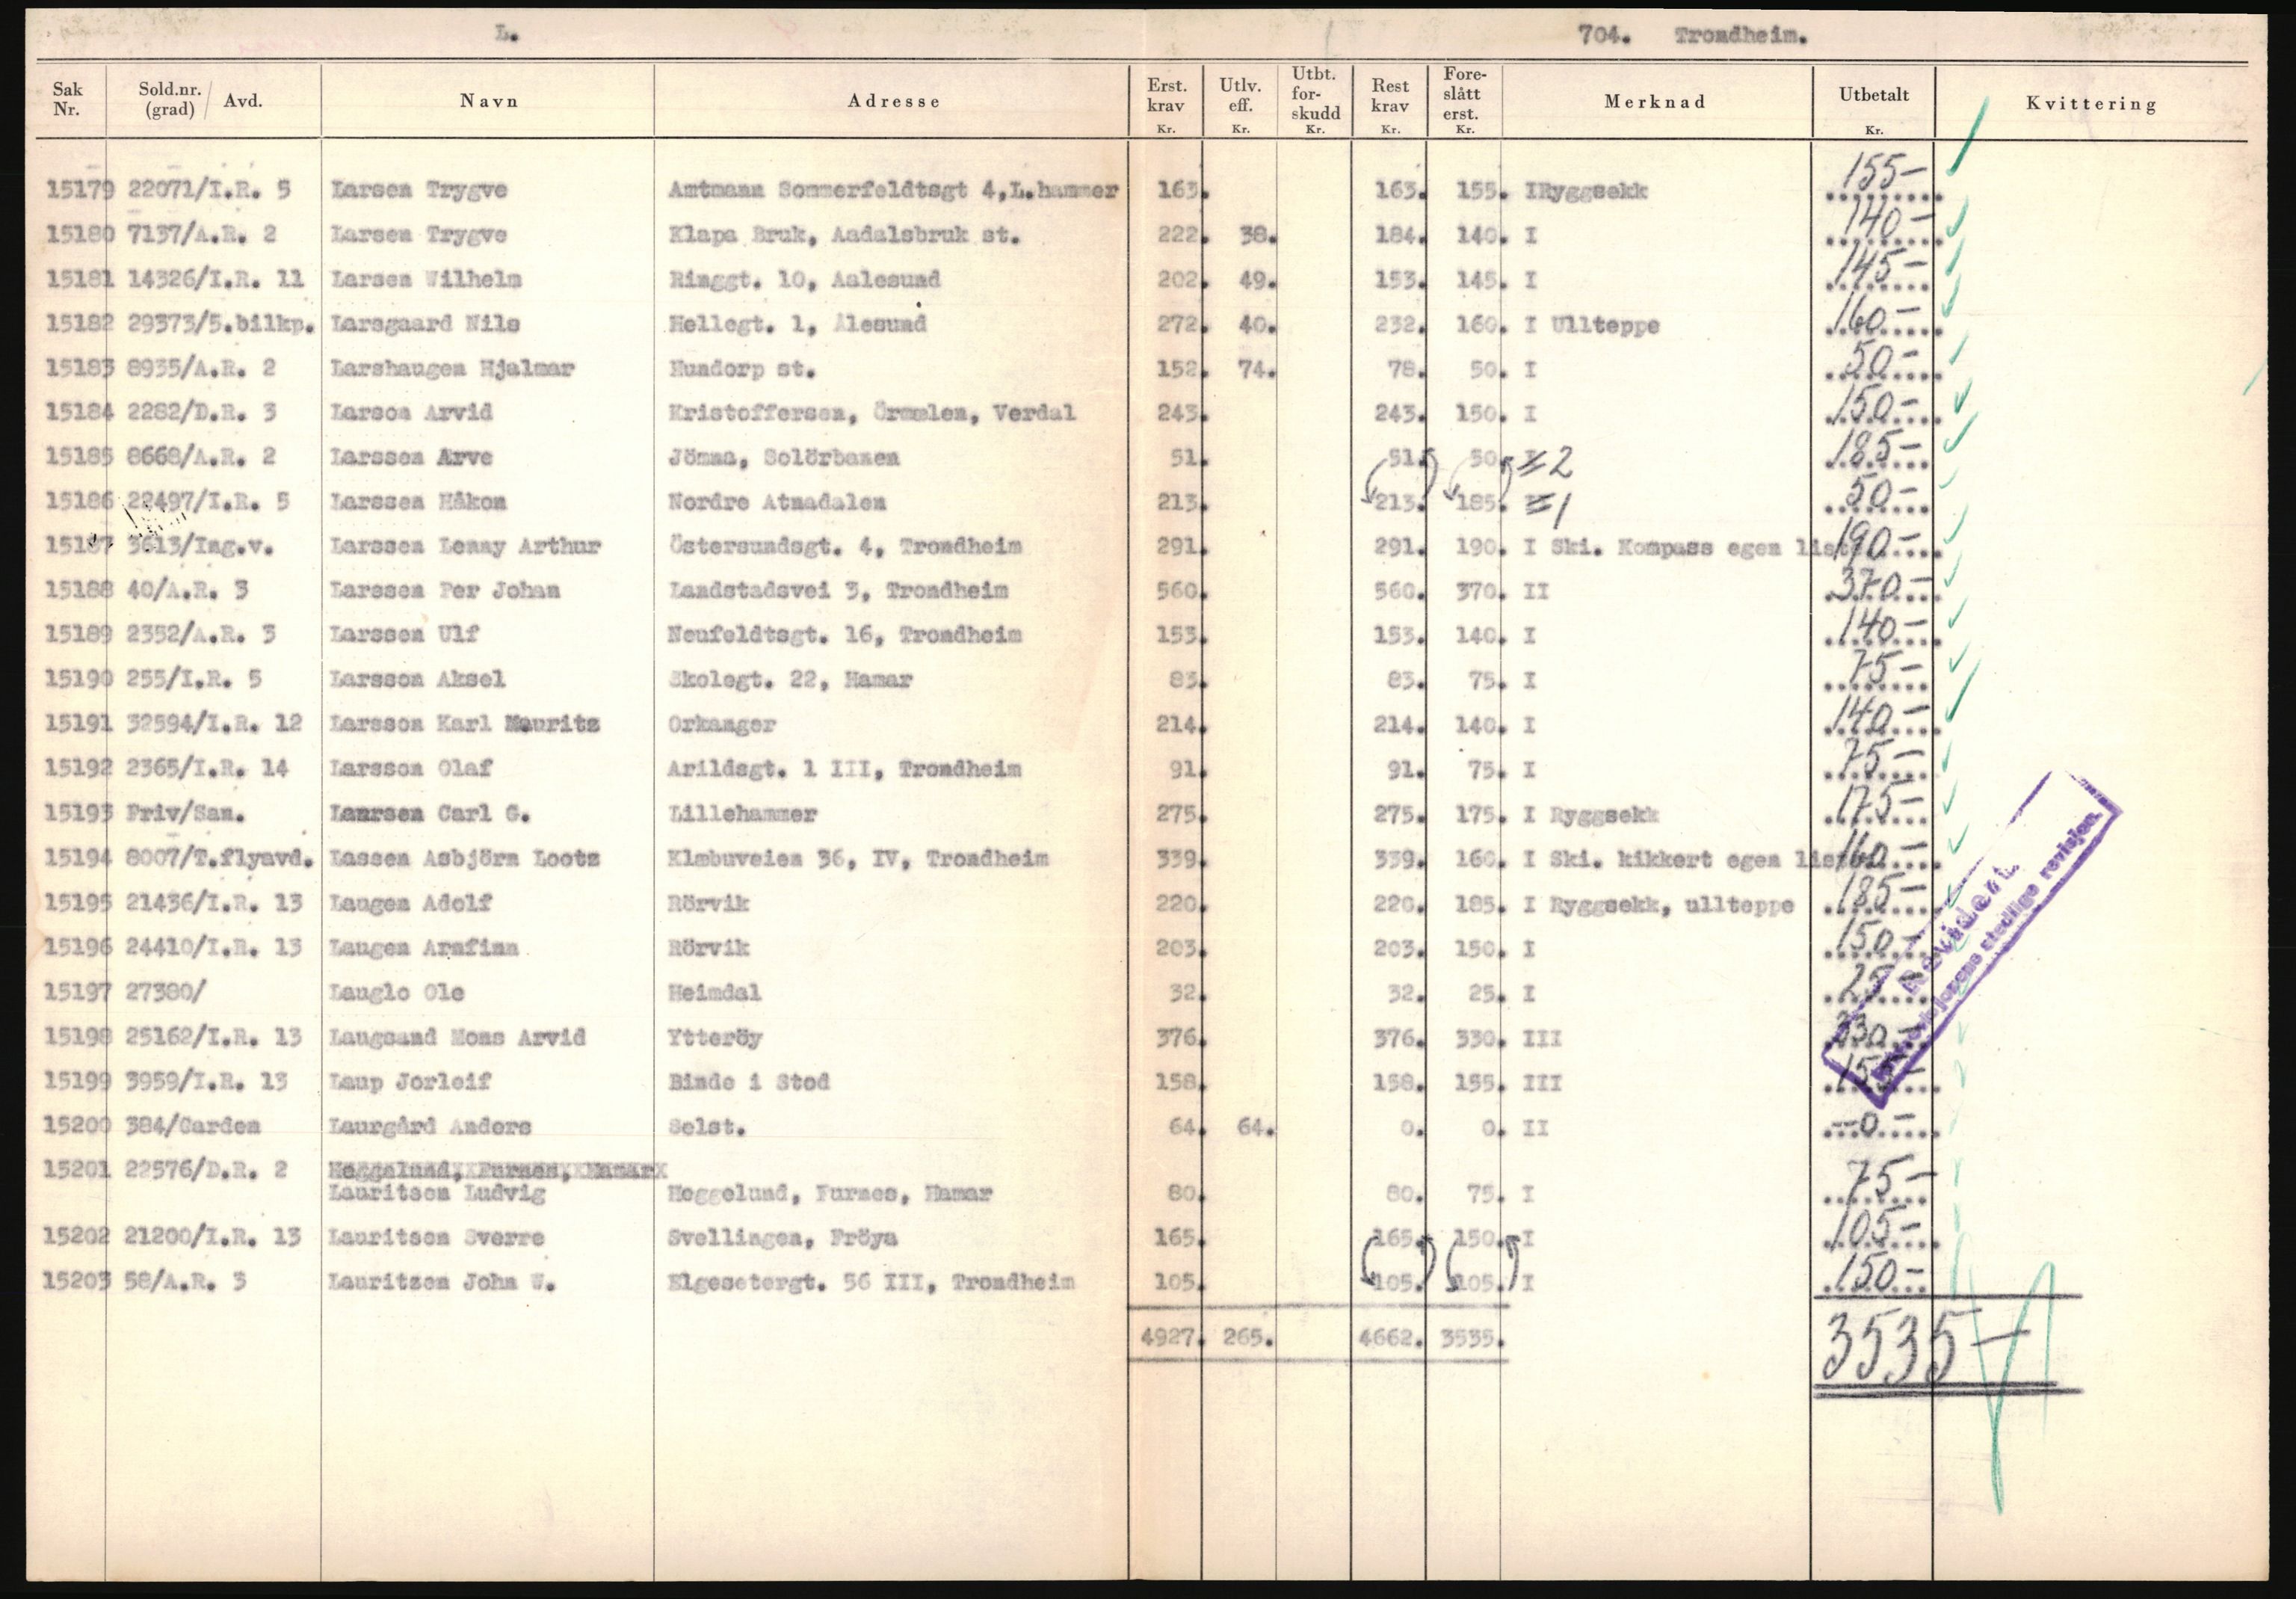 L. 704. Trondheim.
Sak Nr. Sold.nr. (grad) / Avd. Navn Adresse Erst. krav Kr. Utlv. eff. Kr. Utbt. for- skudd Kr. Rest krav Kr. Fore- slått erst. Kr. Merknad Utbetalt Kr. Kvittering
15179 22071/I.R. 5 Larsen Trygve Amtmann Sommerfeldtsgt 4,L.hammer 163. 163. 155. IRyggsekk 155-
15180 7137/A.R. 2 Larsen Trygve Klapa Bruk, Aadalsbruk st. 222. 38. 184. 140. I 140-
15181 14326/I.R. 11 Larsen Wilhelm Ringgt. 10, Aalesund 202. 49. 153. 145. I 145-
15182 29373/5.bilkp. Larsgaard Nils Hellegt. 1, Ålesund 272. 40. 232. 160. I Ullteppe 160-
15183 8935/A.R. 2 Larshaugen Hjalmar Hundorp st. 152. 74. 78. 50. I 50-
15184 2282/D.R. 3 Larson Arvid Kristoffersen, Örmelen, Verdal 243. 243. 150. I 150-
15185 8668/A.R. 2 Larssen Arve Jömna, Solörbanen 51. 51. 50. I 2 185-
15186 22497/I.R. 5 Larssen Håkon Nordre Atnadalen 213. 213. 185. I 1 50-
15187 3613/Ing.v. Larssen Lenny Arthur Östersundsgt. 4, Trondheim 291. 291. 190. I Ski. Kompass egen liste 190-
15188 40/A.R. 3 Larssen Per Johan Landstadsvei 3, Trondheim 560. 560. 370. II 370-
15189 2352/A.R. 3 Larssen Ulf Neufeldtsgt. 16, Trondheim 153. 153. 140. I 140-
15190 255/I.R. 5 Larsson Aksel Skolegt. 22, Hamar 83. 83. 75. I 75-
15191 32594/I.R. 12 Larsson Karl Mauritz Orkanger 214. 214. 140. I 140-
15192 2365/I.R. 14 Larsson Olaf Arildsgt. 1 III, Trondheim 91. 91. 75. I 75-
15193 Friv/San. Laursen Carl G. Lillehammer 275. 275. 175. I Ryggsekk 175-
15194 8007/T.flyavd. Lassen Asbjörn Lootz Klæbuveien 36, IV, Trondheim 339. 339. 160. I Ski. kikkert egen liste 160-
15195 21436/I.R. 13 Laugen Adolf Rörvik 220. 220. 185. I Ryggsekk, ullteppe 185-
15196 24410/I.R. 13 Laugen Arnfinn Rörvik 203. 203. 150. I 150-
15197 27380/ Lauglo Ole Heimdal 32. 32. 25. I 25-
15198 25162/I.R. 13 Laugsand Mons Arvid Ytteröy 376. 376. 330. III 330-
15199 3959/I.R. 13 Laup Jorleif Binde i Stod 158. 158. 155. III 155-
15200 384/Garden Laurgård Anders Selst. 64. 64. 0. 0. II -0-
15201 22576/D.R. 2 Heggelund, Furnes, Hamar
Lauritsen Ludvig Heggelund, Furnes, Hamar 80. 80. 75. I 75-
15202 21200/I.R. 13 Lauritsen Sverre Svellingen, Fröya 165. 165. 150. I 105-
15203 58/A.R. 3 Lauritzen John W. Elgesetergt. 56 III, Trondheim 105. 105. 105. I 150-
4927. 265. 4662. 3535. 3535-
Revidert.
stedlige revisjon.